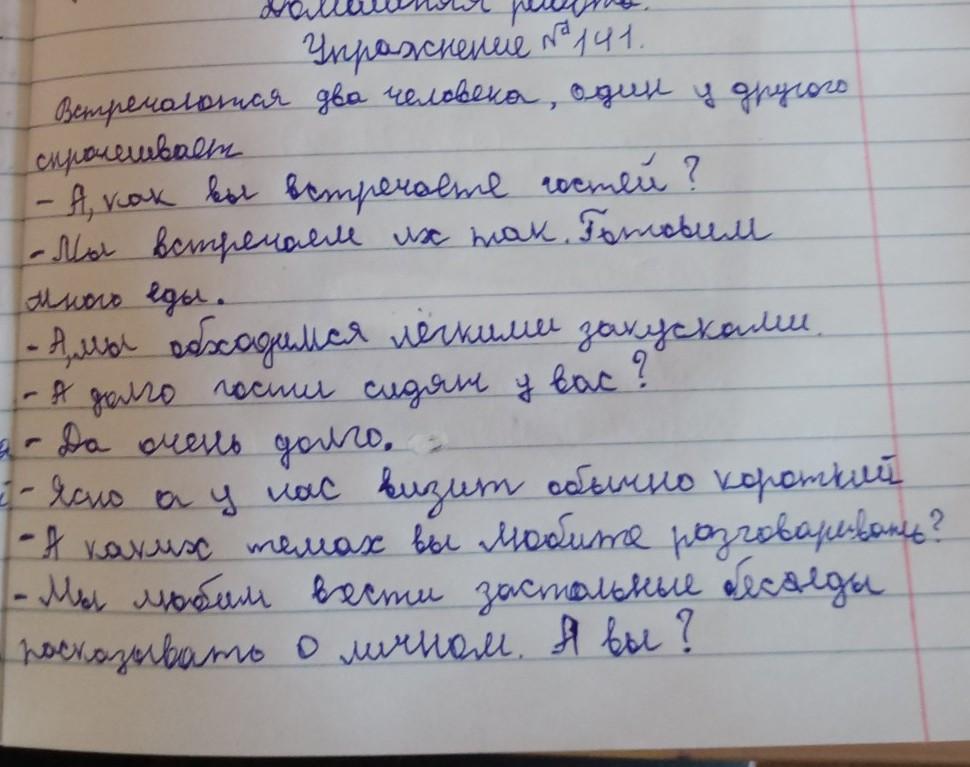 Домашняя работа.
Упражнение №141.
Встречаются два человека, один у другого
спрачеивает
- А, как вы встречаете гостей?
- Мы встречаем их так. Готовим
много еды.
- А, мы обходимся лёгкими закусками.
- А долго гости сидят у вас?
- Да очень долго.
- Ясно а у нас визит обычно короткий
- А каких темах вы любите разговаривать?
- Мы любим вести застольные беседы
расказывать о личном. А вы?